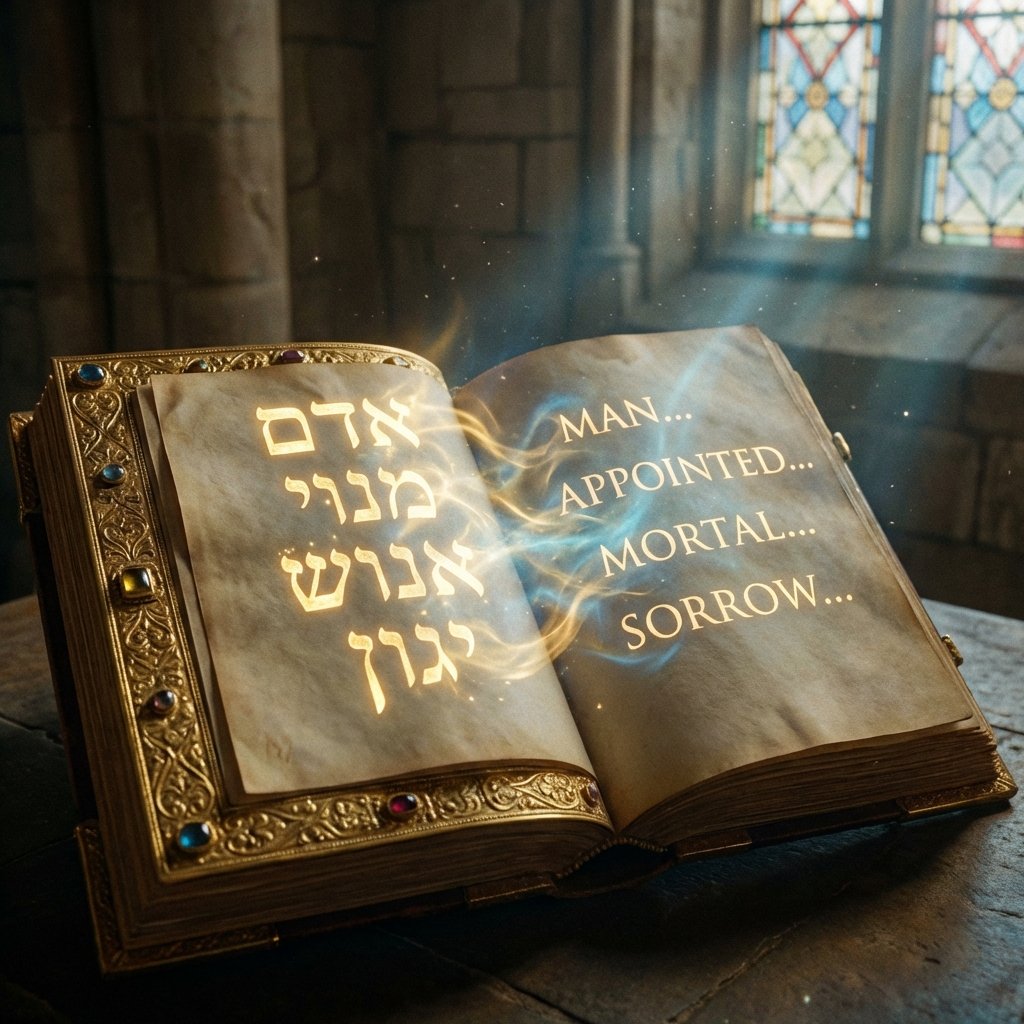 אדם
מנוי
אנוש
יגון
MAN...
APPOINTED...
MORTAL...
SORROW...